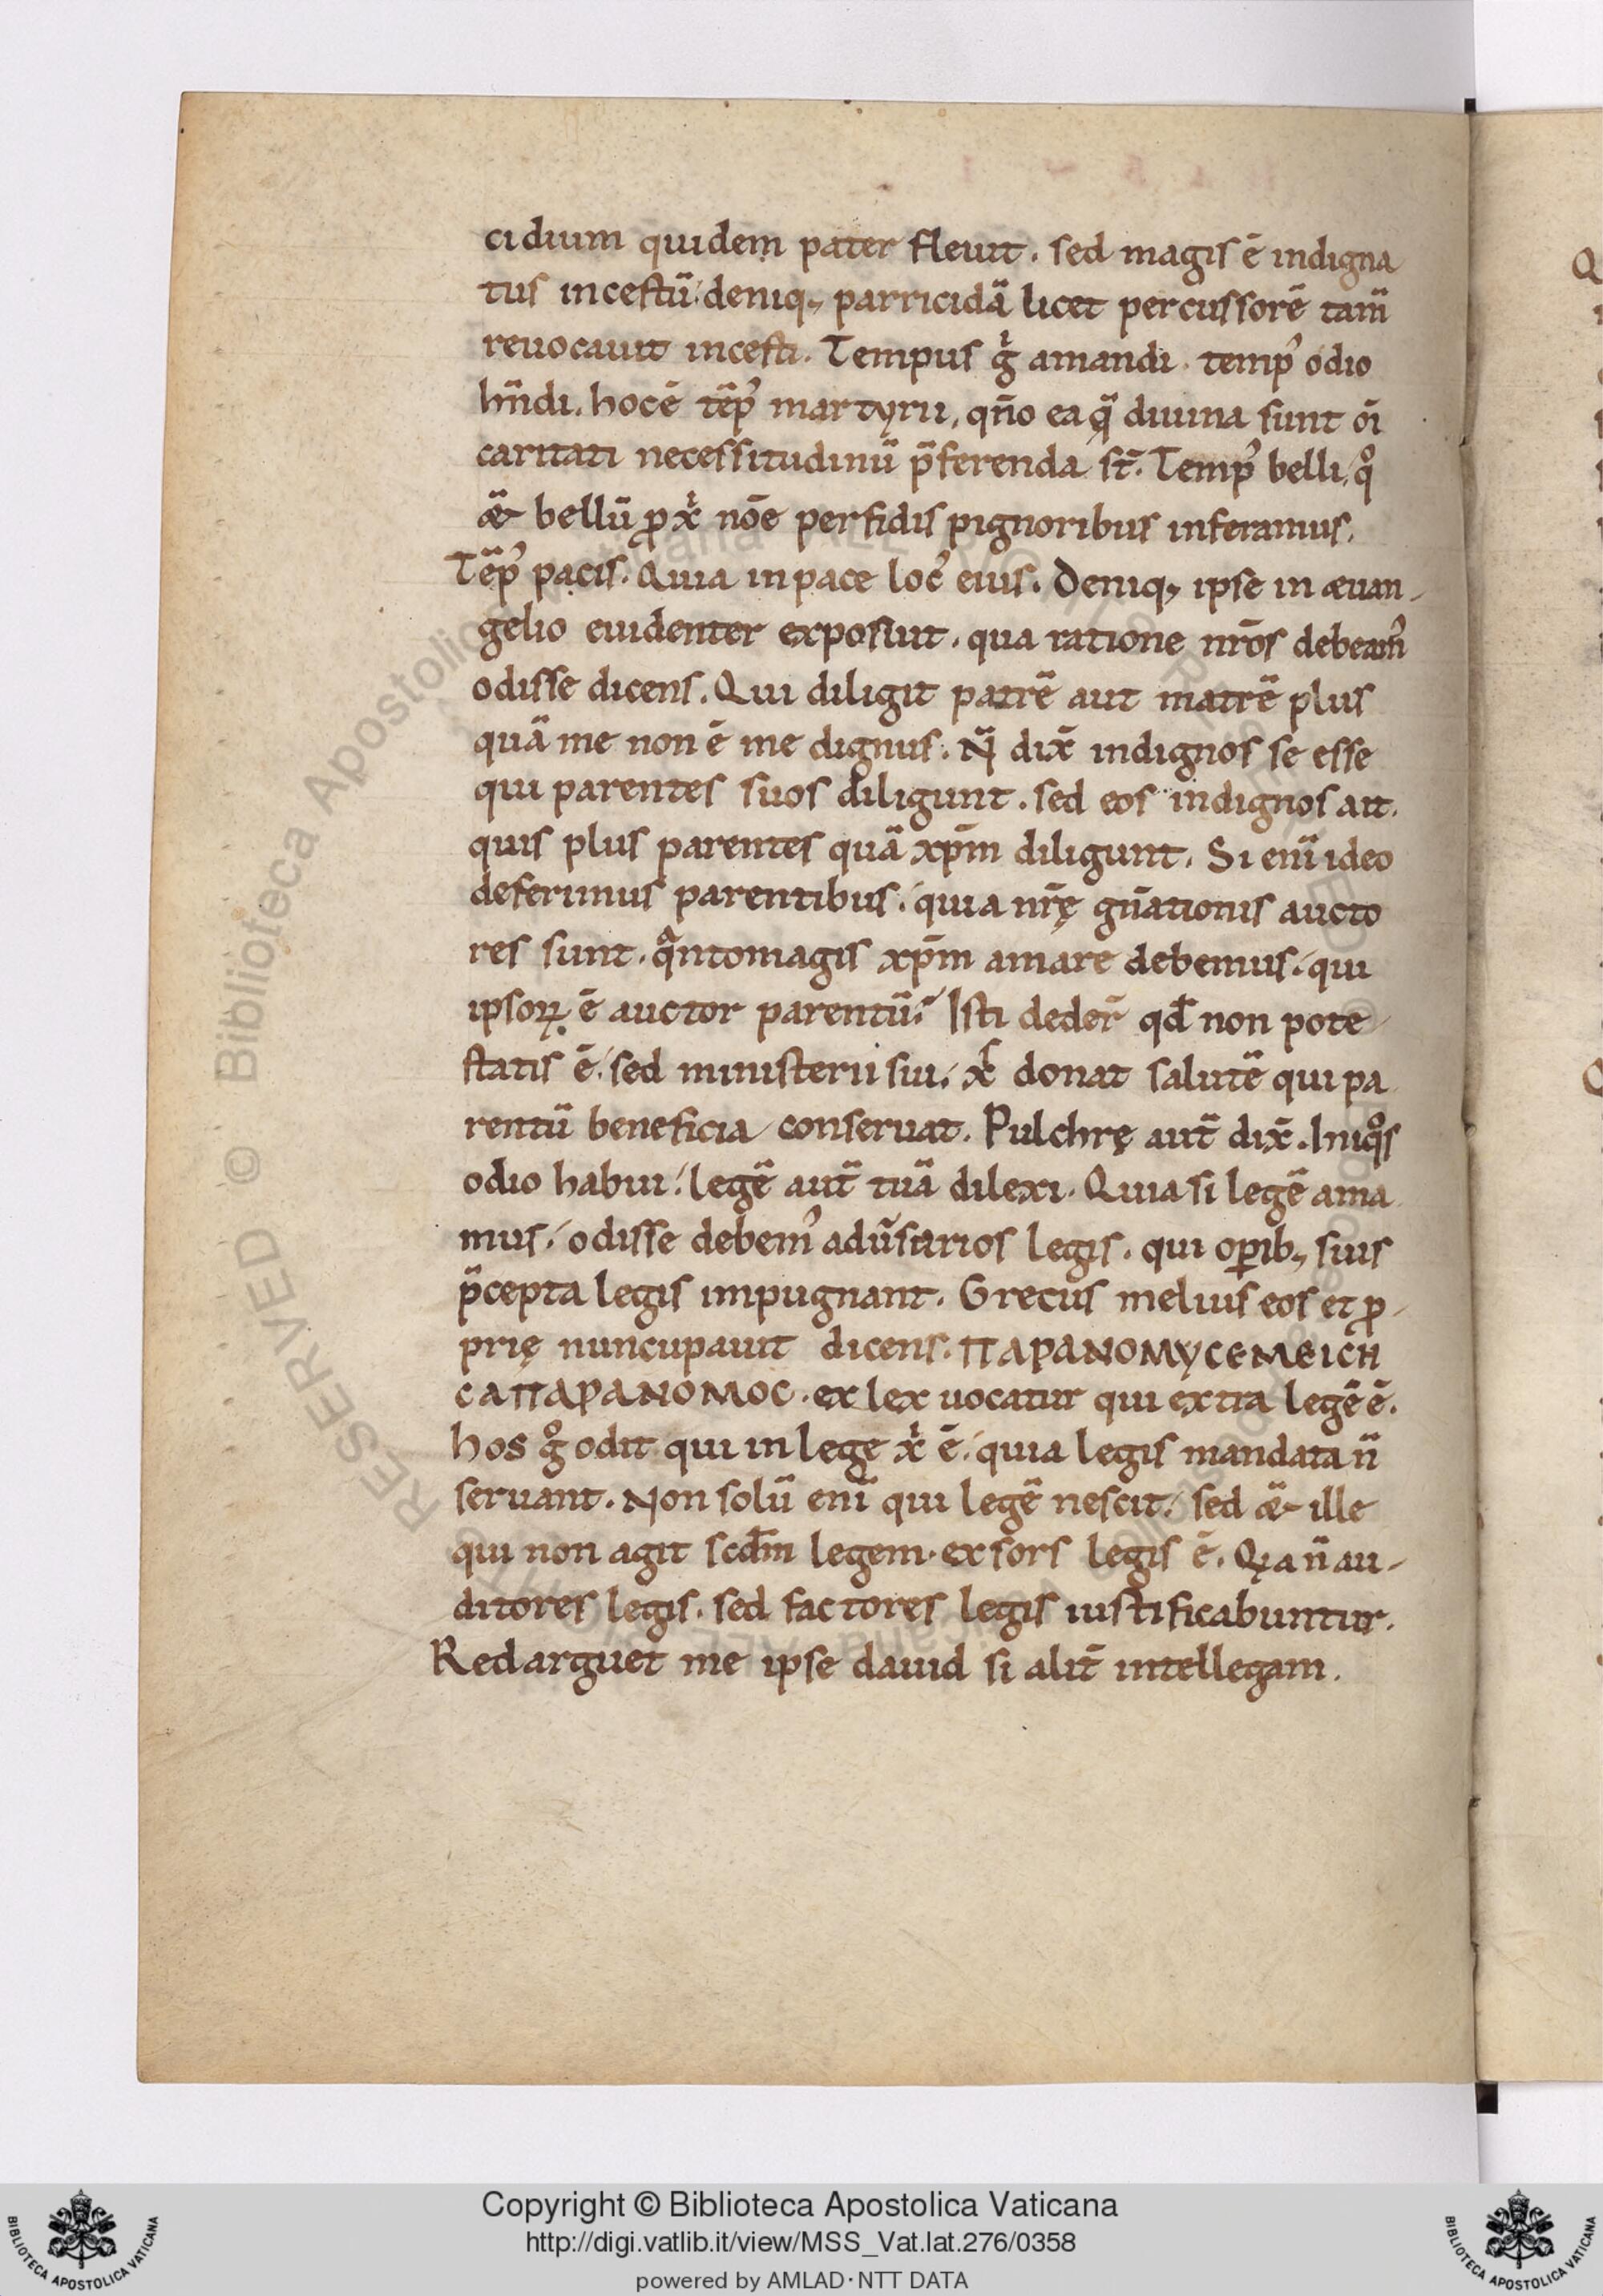 cidium quidem pater fleuit. sed magis ē indigna
tus incestū. deniq; parricidā licet percussorē tam̄
reuocauit incesti. Tempus g̊ amandi. temp᾽ odio
hn̄di. hoc ē tēp᾽ martyrii, qn̄o ea q̄ diuina sunt oī
caritati necessitudinū p̄ferenda st̄. Temp᾽ belli, qͦ
& bellū ꝓ xͥ nōe perfidis pignoribus inferamus.
Tēp᾽ pacis. Quia in pace loc᾽ eius. Deniq; ipse in æuan-
gelio euidenter exposuit. qua ratione nr̄os debeam᾽
odisse dicens. Qui diligit patrē aut matrē plus
quā me non ē me dignus. N̄ dix̄ indignos se esse
qui parentes suos diligunt. sed eos indignos ait.
quis plus parentes quā xp̄m diligunt. Si enī ideo
deferimus parentibus. quia nr̄ę gn̄ationis aucto
res sunt. qͣntomagis xp̄m amare debemus. qui
ipsoꝝ ē auctor parentū? Isti deder̄ qđ non pote
statis ē. sed ministerii sui. xͨ donat salutē qui pa
rentū beneficia conseruat. Pulchrę aut̄ dix̄. Iniqͦs
odio habui. legē aut̄ tuā dilexi. Quia si legē ama
mus. odisse debem᾽ adū̄sarios legis. qui oꝑib; suis
p̄cepta legis impugnant. Grecus melius eos et ꝓ-
prię nuncupauit dicens. ΠΑΡΑΝΟΜΥϹΕΜΕΙϹΗ
ϹΑΠΑΡΑΝΟΜΟϹ. ex lex uocatur qui extra legē ē.
hos gͦ odit qui in lege xͥ ē. quia legis mandata n̄
seruant. Non solū enī qui legē nescit. sed & ille
qui non agit scđm legem. exsors legis ē. Qia n̄ au-
ditores legis. sed factores legis iustificabuntur.
Redarguet me ipse dauid si alit̄ intellegam.
Copyright © Biblioteca Apostolica Vaticana
http://digi.vatlib.it/view/MSS_Vat.lat.276/0358
powered by AMLAD·NTT DATA